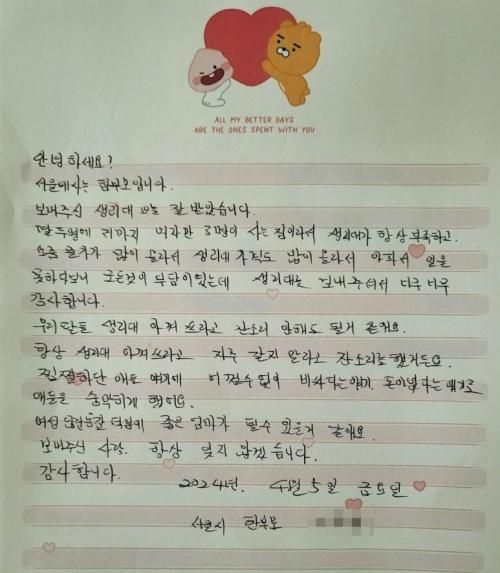 ALL MY BETTER DAYS
ARE THE ONES SPENT WITH YOU
안녕하세요?
서울에사는 한부모입니다.
보내주신 생리대 오늘 잘 받았습니다.
딸 두명에 저까지 여자만 3명이 사는 집이라서 생리대가 항상 부족하고.
요즘 물가가 많이 올라서 생리대 가격도 많이 올라서 아파서 일을
못하다보니 모든것이 부담이 었는데 생리대를 보내주셔서 너무 너무
감사합니다.
우리 딸들 생리대 아껴 쓰라고 잔소리 안해도 될거 같아요.
항상 생리대 아껴쓰라고 자주 갈지 말라고 잔소리를 했거든요.
찝찝하단 애들 얘기에 어쩔수 없이 비싸다는얘기 돈아깝다는 얘기로
애들을 숨막히게 했어요.
여성 덕분에 좋은 엄마가 될수 있을거 같아요.
보내주신 사랑. 항상 잊지 않겠습니다.
감사합니다.
2024년. 4월 5일 금요일
서울시 한부모